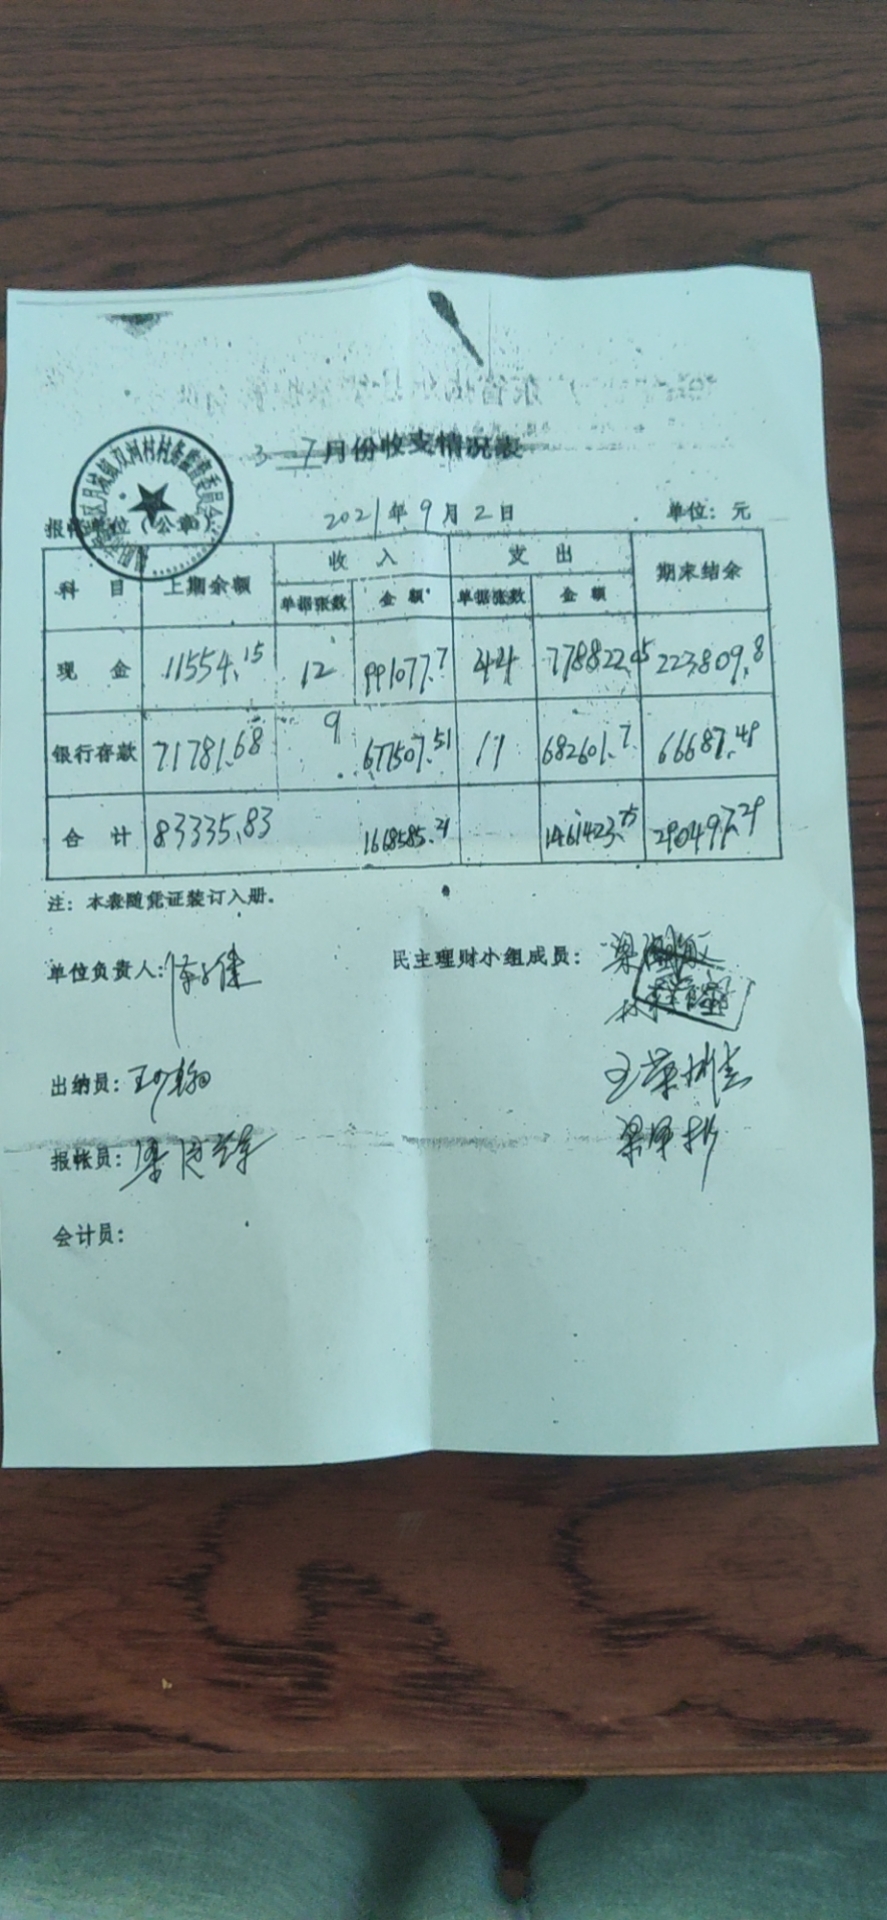 3-7月份收支情况表
月城镇双河村村务监督委员会
报帐单位（公章）
2021年9月2日
单位：元
科目 上期余额 收入 支出 期末结余
单据张数 金额 单据张数 金额
现金 11554.15 12 991077.7 44 778822.05 223809.8
银行存款 71781.68 9 677507.51 17 682601.7 66687.49
合计 83335.83 1668585.21 1461423.75 290497.29
注：本表随凭证装订入册。
单位负责人：
民主理财小组成员：
出纳员：
报帐员：
会计员：